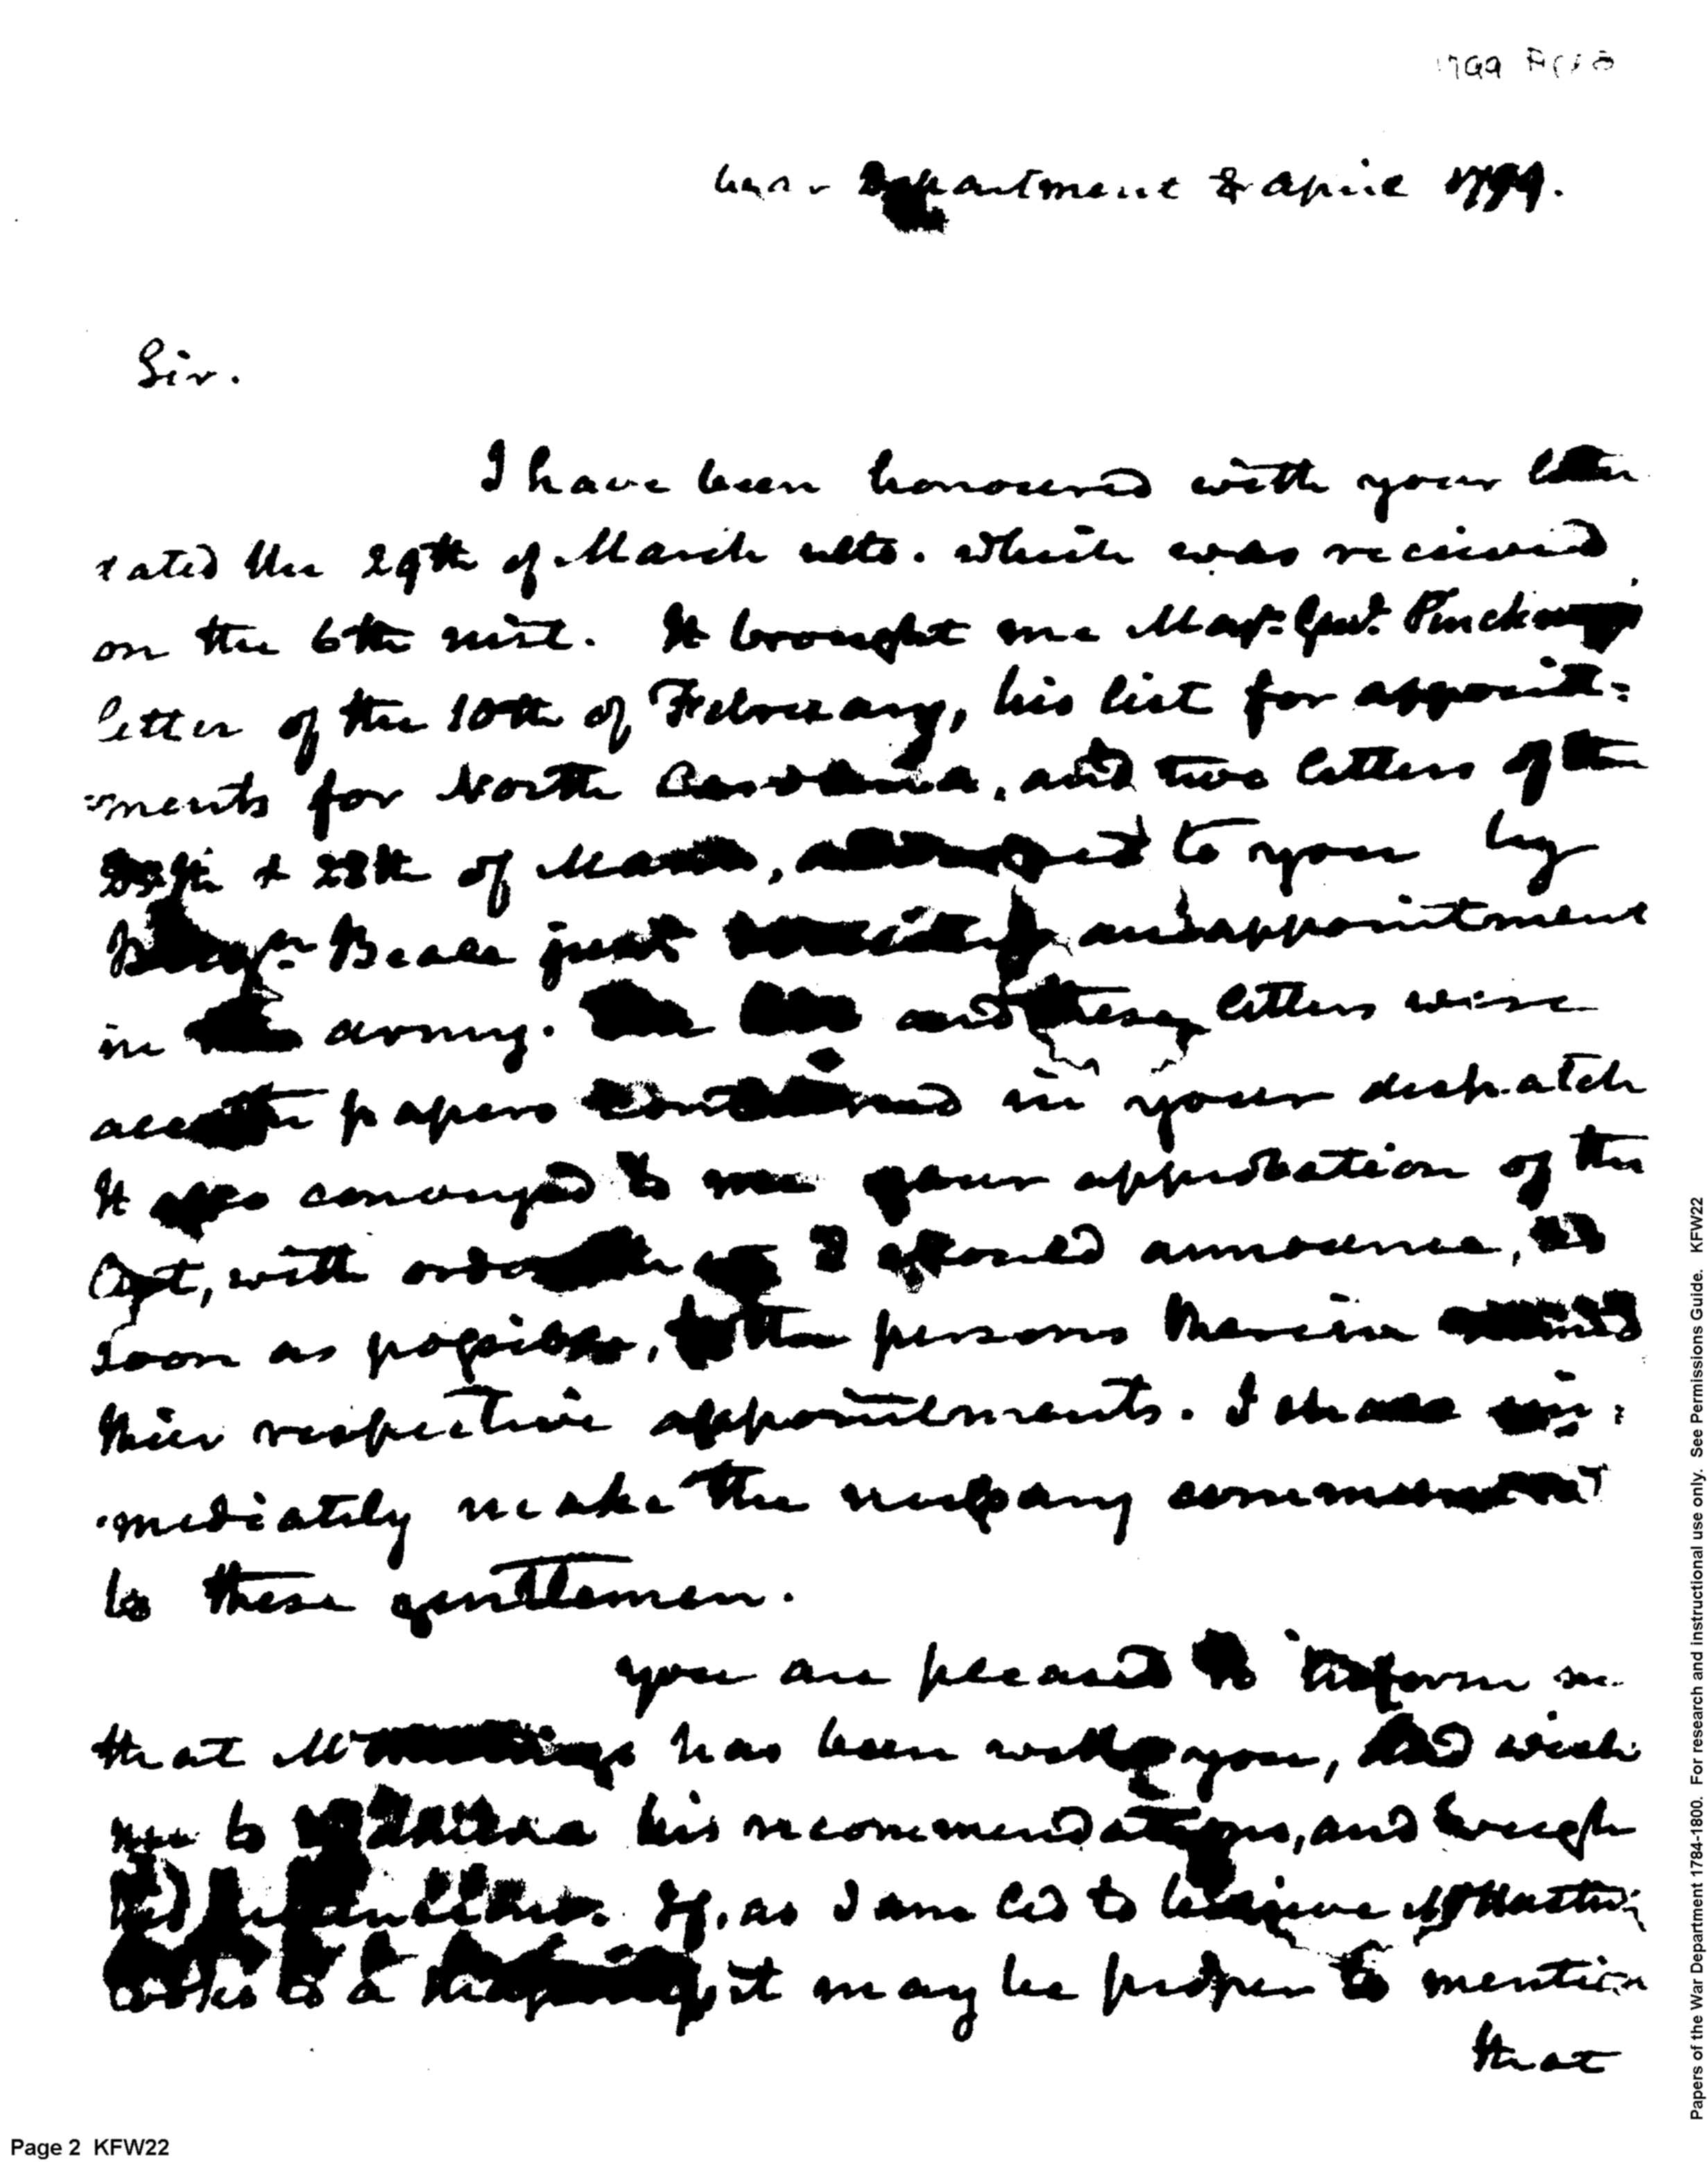 1799 April 8
War Department 8 april 1799.
Sir.
I have been honoured with your letter
dated the 29th of March ulto. which was received
on the 6th inst. It brought me Majr. Genl. Pinckneys
letter of the 10th of February, his list for appoint=
=ments for North Carolina, and two letters of the
& 28th of March, to you by
Beale just and appointment
in army. and these letters were
all the papers contained in your dispatch
It also conveyed to me your approbation of the
with I should announce, as
soon as possible, to the persons therein named
their respective appointments. I shall im=
=mediately make the necessary
to these gentlemen.
you are pleased to inform me
that Mr Hastings has been with you, and wish
me to his recommendations, and weigh
If, as I am led to believe Mr Hastings
looks to a it may be proper to mention
that
Page 2 KFW22
Papers of the War Department 1784-1800. For research and instructional use only. See Permissions Guide. KFW22